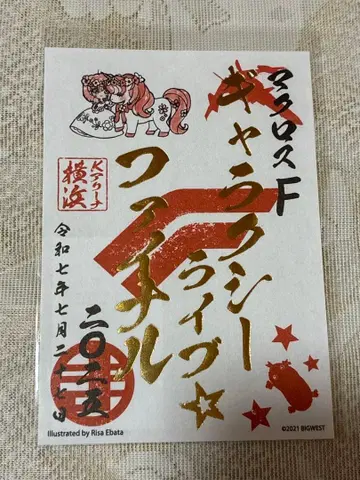 マクロスF
ギャラクシー
ライブ☆
ファイナル
二〇二五
Kアリーナ
横浜
令和七年七月二十七日
Illustrated by Risa Ebata
©2021 BIGWEST